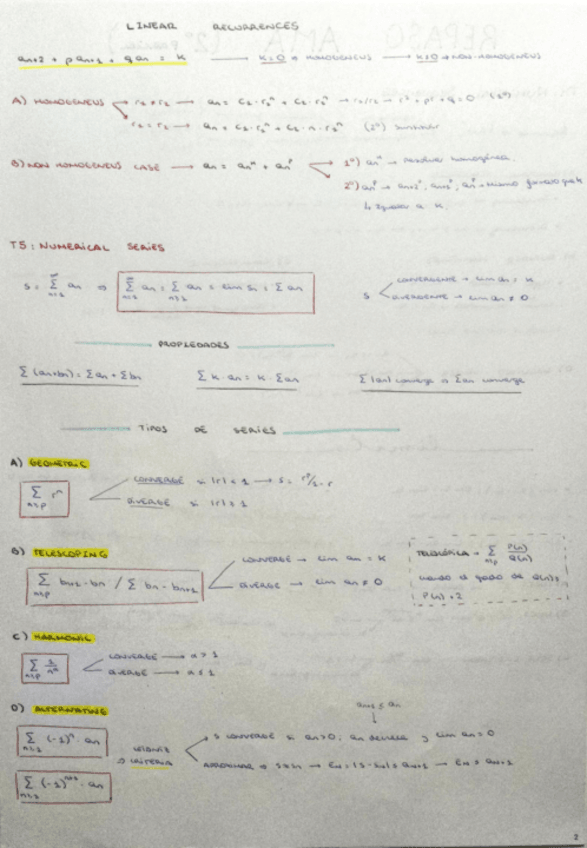 LINEAR RECURRENCES
an+2 + p an+1 + q an = k → k=0 → HOMOGENEUS → k≠0 → NON-HOMOGENEUS
A) HOMOGENEUS → r1 ≠ r2 → an = C1 · r1^n + C2 · r2^n → r1/r2 → r² + pr + q = 0 (1º)
r1 = r2 → an = C1 · r1^n + C2 · n · r2^n (2º) sustituir
B) NON HOMOGENEUS CASE → an = an^h + an^p → 1º) an^h → resolver homogénea.
2º) an^p → an+2^p, an+1^p, an^p → mismo
↳ igualar a k.
T5: NUMERICAL SERIES
S = ∑ an ⇒ ∑ an = ∑ an = lim Sn = ∑ an
n≥1
CONVERGENTE → lim an = k
S
DIVERGENTE → lim an ≠ 0
PROPIEDADES
∑ (an+bn) = ∑an + ∑bn ∑ k · an = k · ∑an ∑ |an| converge ⇒ ∑an converge
TIPOS DE SERIES
A) GEOMETRIC
∑ r^n
n≥p
CONVERGE si |r| < 1 → S = r^p/1-r
DIVERGE si |r| ≥ 1
B) TELESCOPING
∑ bn+1 - bn / ∑ bn - bn+1
n≥p
CONVERGE → lim an = k
DIVERGE → lim an ≠ 0
TELESCÓPICA → ∑ P(n)/Q(n)
n≥p
cuando el grado de Q(n) ≥
P(n) + 2
C) HARMONIC
∑ 1/n^α
n≥p
CONVERGE → α > 1
DIVERGE → α ≤ 1
D) ALTERNATING
an+1 ≤ an
∑ (-1)^n · an
n≥1
∑ (-1)^n+1 · an
n≥1
LEIBNIZ
CRITERIA
S CONVERGE si an>0; an decrece y lim an = 0
APROXIMAR ⇒ S≈Sn → En = |S-Sn| ≤ an+1 → En ≤ an+1
2